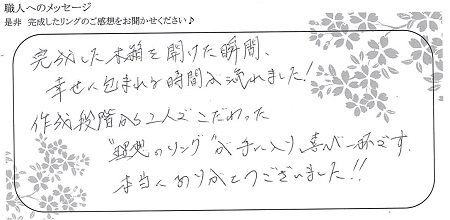 職人へのメッセージ
是非 完成したリングのご感想をお聞かせください♪
完成した木箱を開けた瞬間、
幸せに包まれた時間が流れました!
作成段階から2人でこだわった
"理想のリング"が手に入り喜び一杯です。
本当にありがとうございました!!